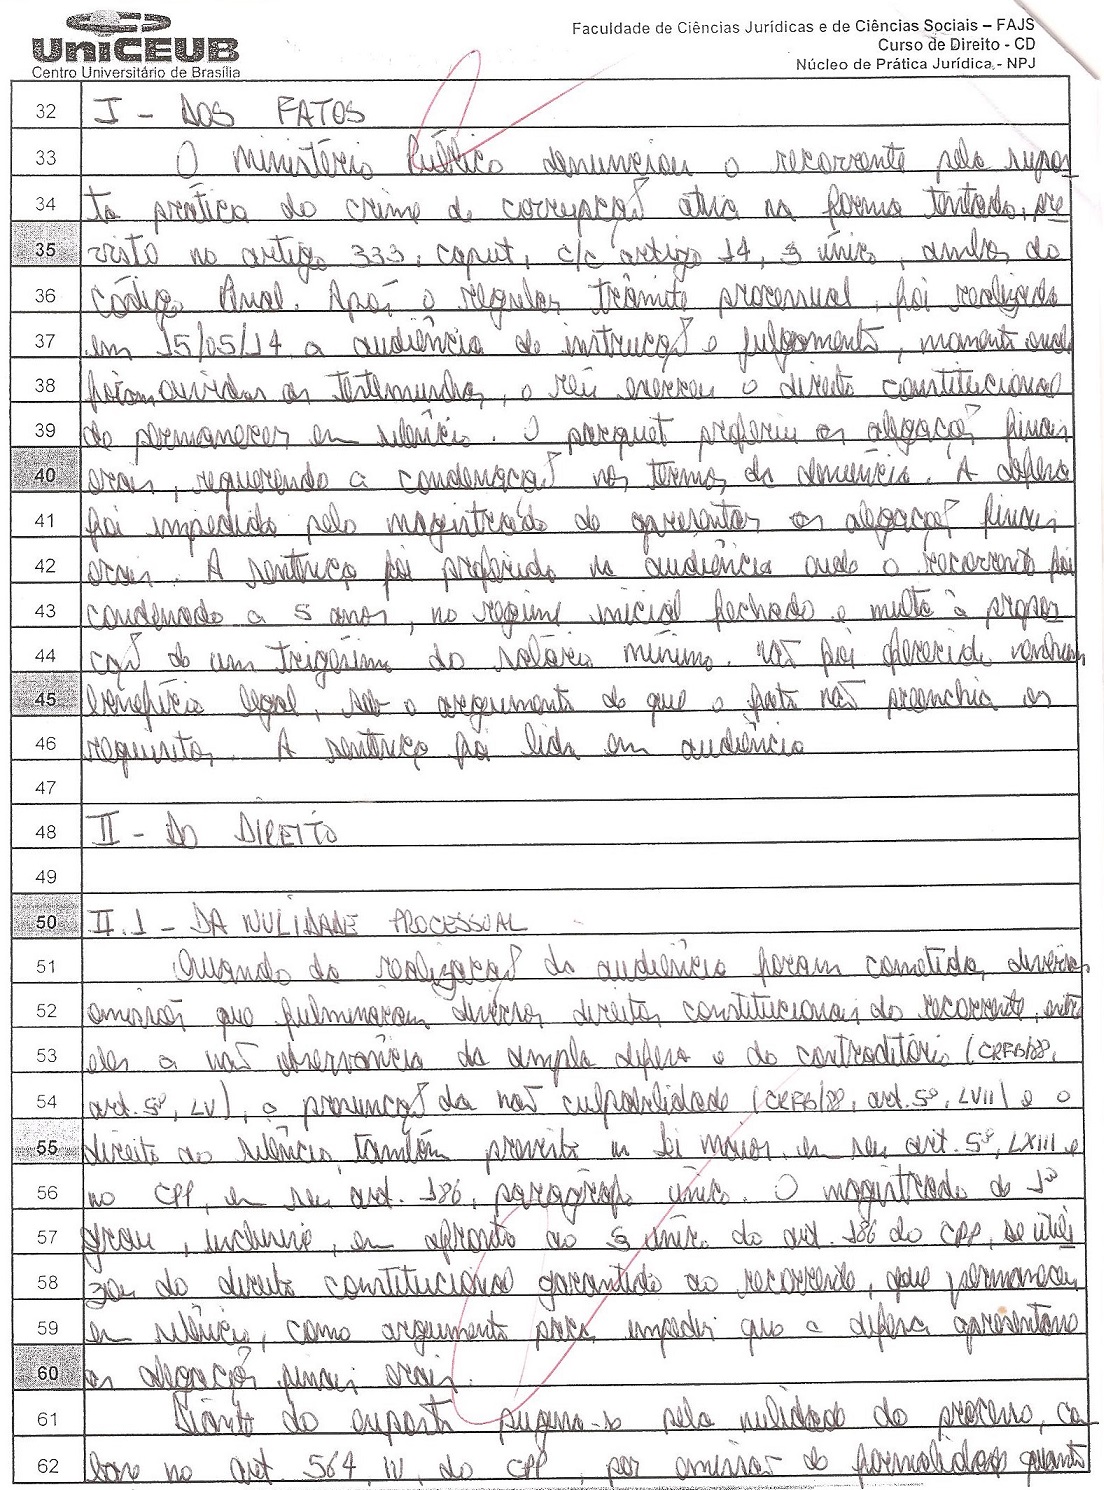 UniCEUB
Centro Universitário de Brasília
Faculdade de Ciências Jurídicas e de Ciências Sociais – FAJS
Curso de Direito - CD
Núcleo de Prática Jurídica - NPJ
32 I - DOS FATOS
33 O Ministério Público denunciou o recorrente pela supos
34 ta prática do crime de corrupção ativa na forma tentada, pre
35 visto no artigo 333, caput, c/c artigo 14, § único, ambos do
36 Código Penal. Após o regular trâmite processual, foi realizada
37 em 15/05/14 a audiência de instrução e julgamento, momento onde
38 foram ouvidas as testemunhas, o réu exerceu o direito constitucional
39 de permanecer em silêncio. O parquet proferiu as alegações finais
40 orais, requerendo a condenação nos termos da denúncia. A defesa
41 foi impedida pelo magistrado de apresentar as alegações finais
42 orais. A sentença foi proferida na audiência onde o recorrente foi
43 condenado a 5 anos, no regime inicial fechado e multa à propor
44 ção de um trigésimo do salário mínimo. Não foi oferecido nenhum
45 benefício legal, sob o argumento de que o fato não preenchia os
46 requisitos. A sentença foi lida em audiência
47
48 II - DO DIREITO
49
50 II.1 - DA NULIDADE PROCESSUAL
51 Quando da realização da audiência foram cometidas diversas
52 omissões que fulminaram diversos direitos constitucionais do recorrente, entre
53 eles a não observância da ampla defesa e do contraditório (CRFB/88,
54 art. 5º, LV), a presunção da não culpabilidade (CRFB/88, art. 5º, LVII) e o
55 direito ao silêncio, também previsto na Lei maior, em seu art. 5º, LXIII e
56 no CPP, em seu art. 186, parágrafo único. O magistrado de 1º
57 grau, inclusive, em afronta ao § único do art. 186 do CPP, se utili
58 zou do direito constitucional garantido ao recorrente, que permaneceu
59 em silêncio, como argumento para impedir que a defesa apresentasse
60 as alegações finais orais.
61 Diante do exposto pugna-se pela nulidade do processo, com
62 base no art. 564, IV, do CPP, por omissão de formalidade quanto